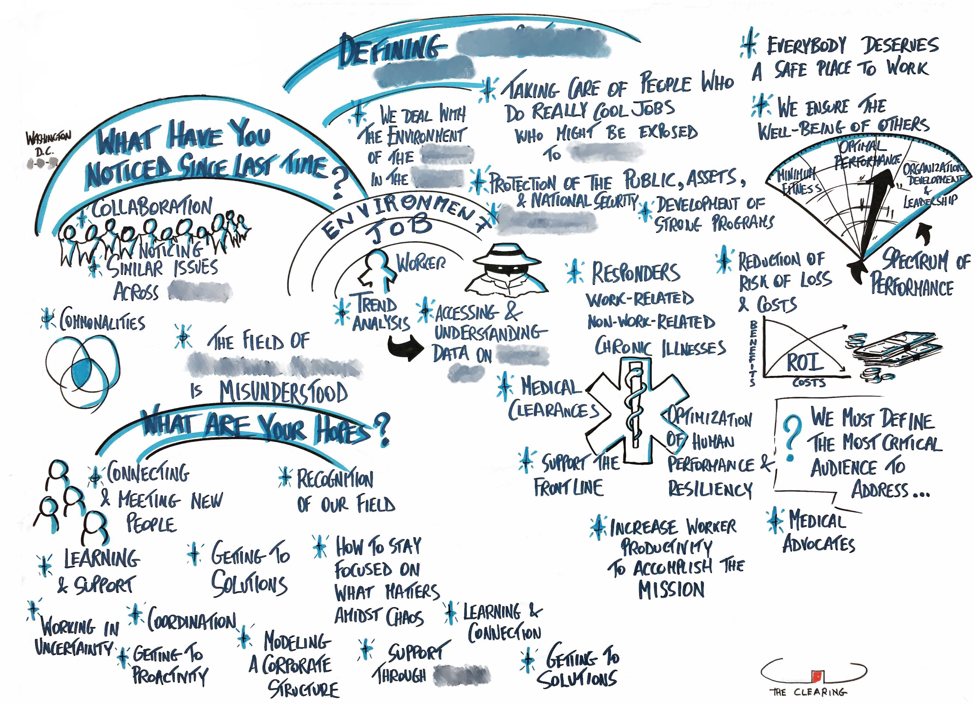 DEFINING
WASHINGTON
D.C.
WHAT HAVE YOU
NOTICED SINCE LAST TIME?
COLLABORATION
NOTICING
SIMILAR ISSUES
ACROSS
COMMONALITIES
THE FIELD OF
IS MISUNDERSTOOD
WE DEAL WITH
THE ENVIRONMENT
OF THE
IN THE
TAKING CARE OF PEOPLE WHO
DO REALLY COOL JOBS
WHO MIGHT BE EXPOSED
TO
PROTECTION OF THE PUBLIC, ASSETS,
& NATIONAL SECURITY
DEVELOPMENT OF
STRONG PROGRAMS
ENVIRONMENT
JOB
WORKER
TREND
ANALYSIS
ACCESSING &
UNDERSTANDING
DATA ON
EVERYBODY DESERVES
A SAFE PLACE TO WORK
WE ENSURE THE
WELL-BEING OF OTHERS
MINIMUM
FITNESS
OPTIMAL
PERFORMANCE
ORGANIZATION
DEVELOPMENT
&
LEADERSHIP
SPECTRUM OF
PERFORMANCE
RESPONDERS
WORK-RELATED
NON-WORK-RELATED
CHRONIC ILLNESSES
REDUCTION OF
RISK OF LOSS
& COSTS
BENEFITS
ROI
COSTS
MEDICAL
CLEARANCES
SUPPORT THE
FRONT LINE
OPTIMIZATION
OF HUMAN
PERFORMANCE &
RESILIENCY
? WE MUST DEFINE
THE MOST CRITICAL
AUDIENCE TO
ADDRESS...
MEDICAL
ADVOCATES
INCREASE WORKER
PRODUCTIVITY
TO ACCOMPLISH THE
MISSION
WHAT ARE YOUR HOPES?
CONNECTING
& MEETING NEW
PEOPLE
RECOGNITION
OF OUR FIELD
LEARNING
& SUPPORT
GETTING TO
SOLUTIONS
HOW TO STAY
FOCUSED ON
WHAT MATTERS
AMIDST CHAOS
WORKING IN
UNCERTAINTY
COORDINATION
GETTING TO
PROACTIVITY
MODELING
A CORPORATE
STRUCTURE
SUPPORT
THROUGH
LEARNING &
CONNECTION
GETTING TO
SOLUTIONS
THE CLEARING